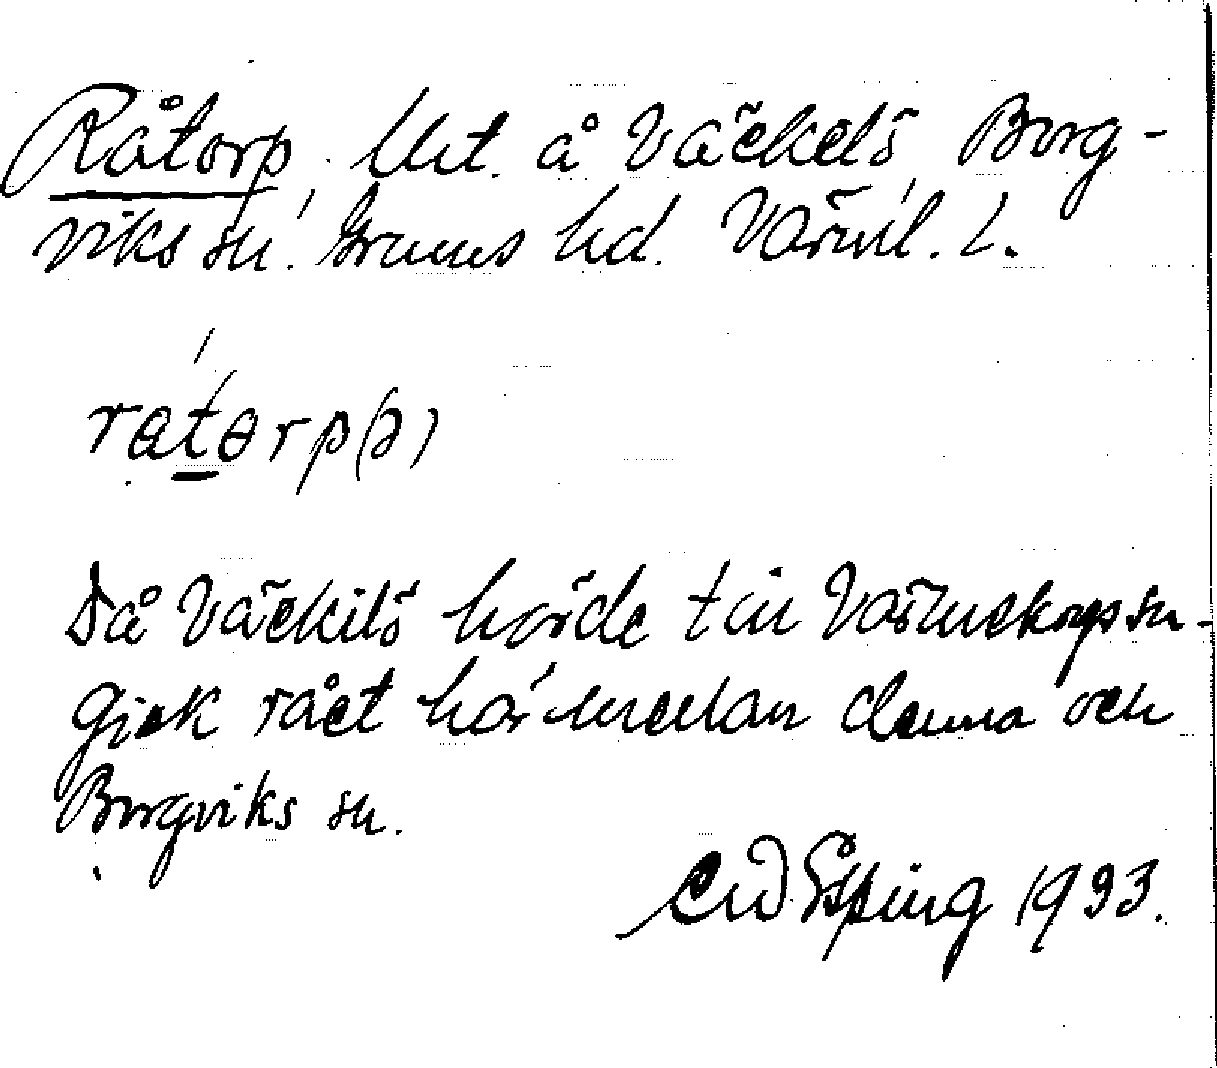 Råtorp, lht. å Väckelö, Borg-
viks sn. Grums hd. Värml. L.
ratorp(ə)
Då Väckelö hörde till Värmskogs sn-
gick rået här mellan denna och
Borgviks sn.
CW Esping 1933.